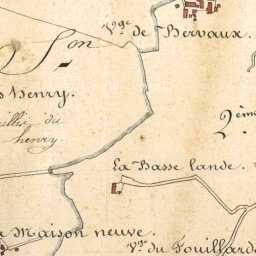 Son
Vge de Hervaux.
s henry.
2ème
du
henry
La Basse lande.
la Maison neuve.
Vge du Fouillard